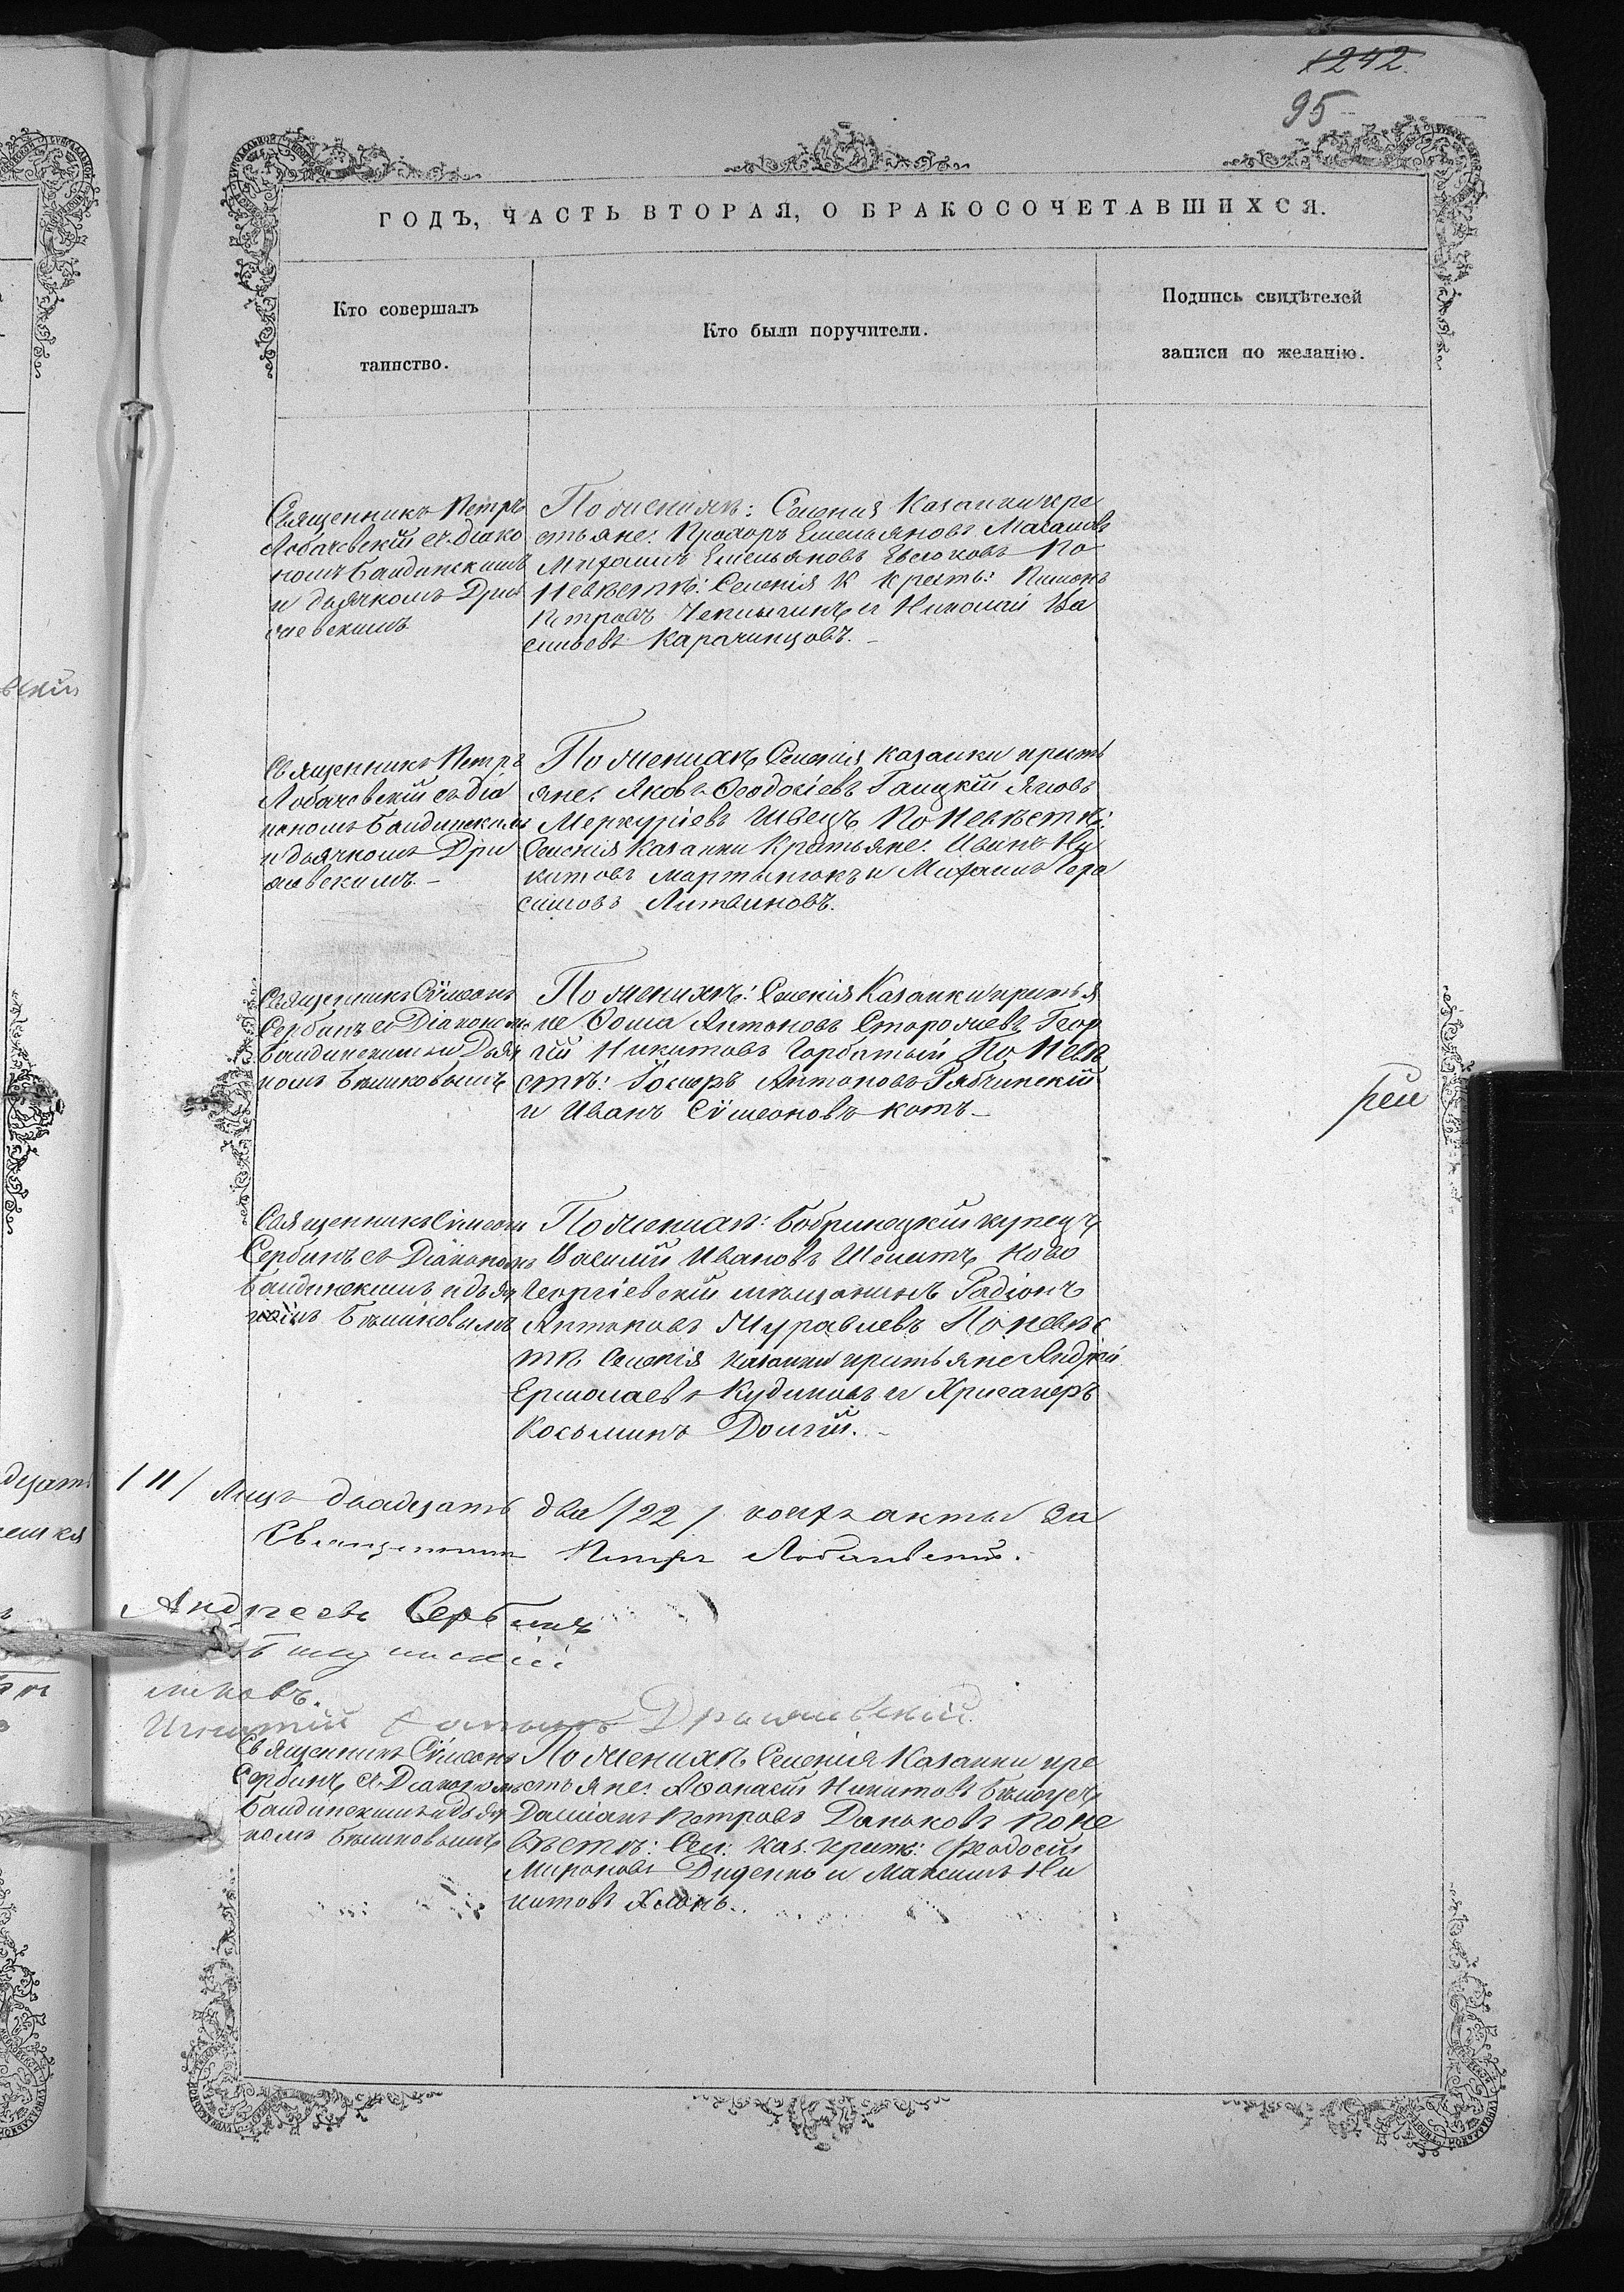 1242.
95
ГОДЪ, ЧАСТЬ ВТОРАЯ, О БРАКОСОЧЕТАВШИХСЯ.
Кто совершалъ
таинство.
Кто были поручители.
Подпись свидѣтелей
записи по желанію.
Священникъ Петръ
Лобачевскій съ діако
номъ Бандинскимъ
и дьячкомъ
По женихѣ: Селенія Казанки кре
стьяне: Прохоръ Емельяновъ
Михаилъ Емельяновъ Евсюковъ По
невѣстѣ: Селенія К крсть: Пименъ
Петровъ и Николай Ва
сильевъ Карачинцовъ.
Священникъ Петръ
Лобачевскій съ діа
кономъ Бандинскимъ
и дьячкомъ
По женихѣ Селенія Казанки крсть
яне: Яковъ Ѳеодосіевъ Галицкій Яковъ
Меркуріевъ Швецъ По невѣстѣ:
Селенія Казанки Крстьяне: Ни
китовъ Мартынюкъ и Михаилъ Гера
симовъ Литвиновъ.
Священникъ Сѵмеонъ
Сербинъ съ Діакономъ
Бандинскимъ и Дьяч
комъ Бѣликовымъ
По женихѣ: Селенія Казанки крстья
не Ѳома Антоновъ Сторожевъ Геор
гій Никитовъ Горбатый По невѣ
стѣ: Антоновъ Рябчинскій
и Иванъ Сѵмеоновъ Котъ —
Священникъ Сѵмеонъ
Сербинъ съ Діакономъ
Бандинскимъ и дьяч
комъ Бѣликовымъ
По женихѣ: Бобринецкій купецъ
Василій Ивановъ Ново
георгіевскій мѣщанинъ Радіонъ
Антоновъ Журавлевъ По невѣс
тѣ Селенія Казанки крстьяне Андрей
Ермолаевъ Кудиновъ и
Косьминъ Долгій. —
/11/ Лицъ двадцать два /22/ коихъ акты за
Священникъ Петръ Лобачевскій.
Андреевъ Сербинъ
Бандинскій
ликовъ.
Игнатій
Священникъ Сѵмеонъ
Сербинъ съ Діакономъ
Бандинскимъ и дьяч
комъ Бѣликовымъ
По женихѣ Селенія Казанки кре
стьяне: Аѳанасій Никитовъ
Даміанъ Петровъ Даньковъ По не
вѣстѣ: Сел: Каз. крсть: Ѳеодосій
Мироновъ Диденко и Максимъ Ни
китовъ